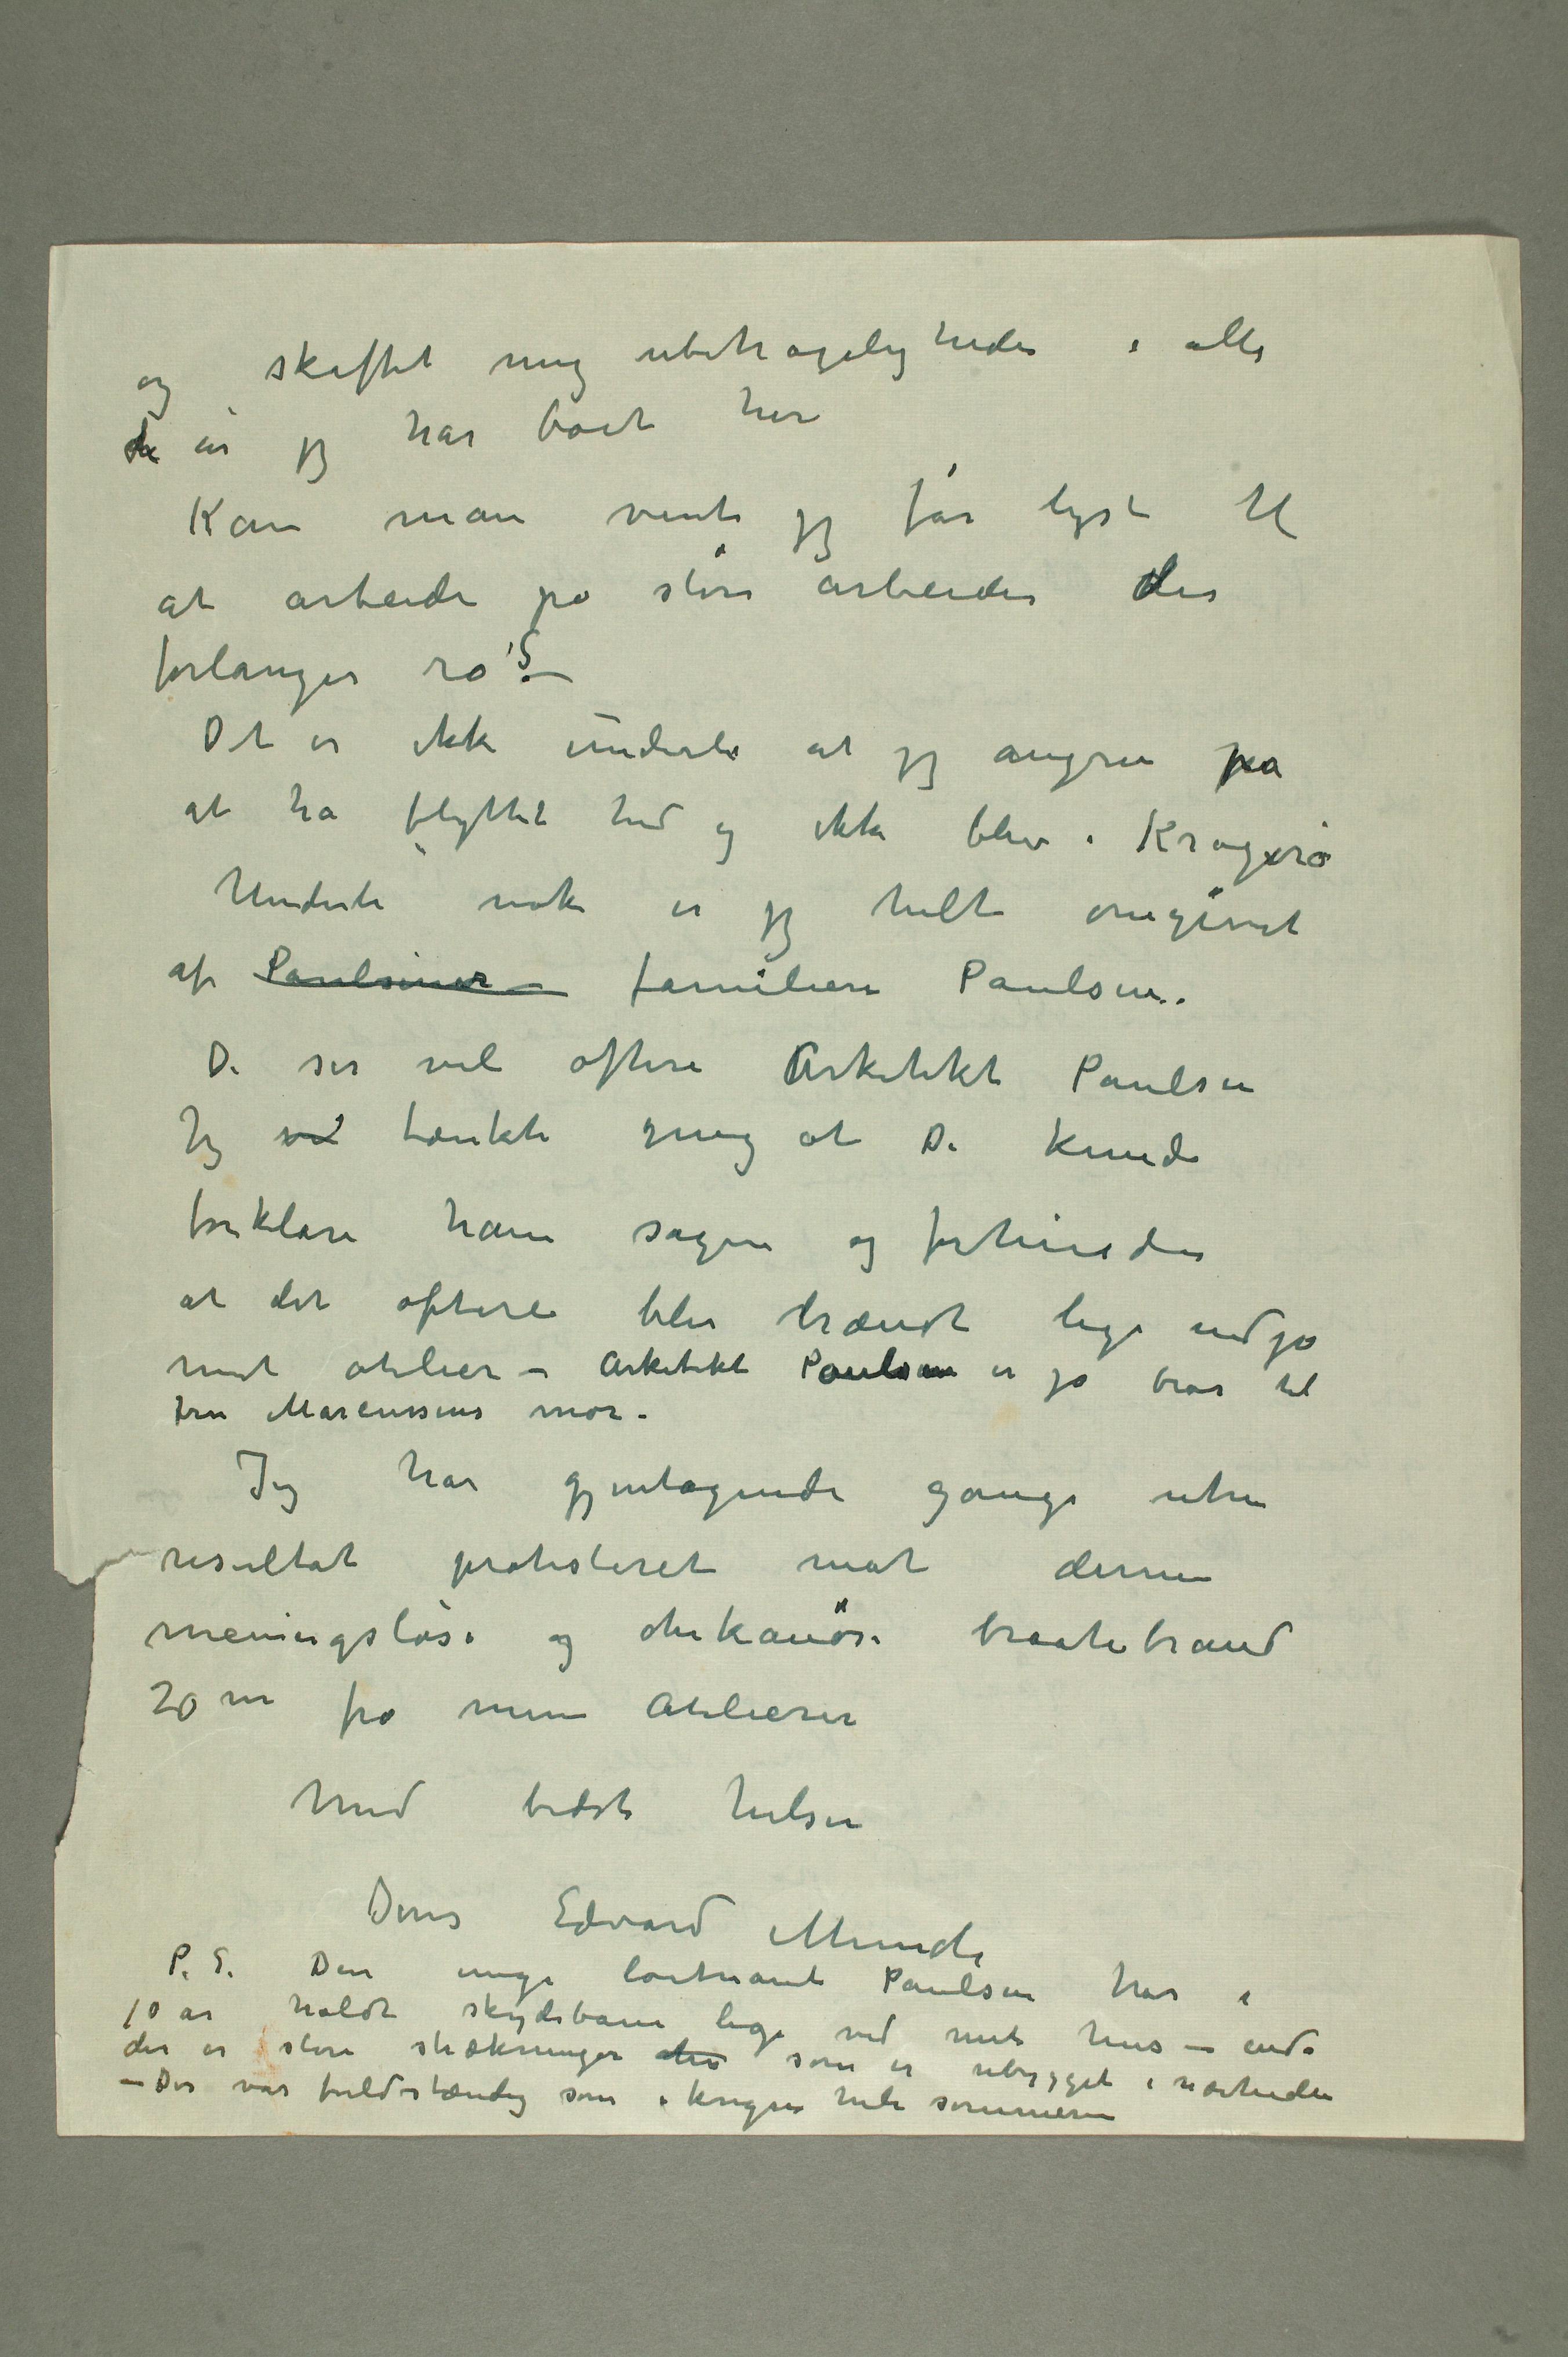 og skaffet mig ubehageligheder i alle
de år jeg har boet her
Kan man vente jeg får lyst til
at arbeide på store arbeider der
forlanger ro?–
Det er ikke underli at jeg angrer på
at ha flyttet hid og ikke blev i Kragerø
Underli nok er jeg helt omgivet
af Paulsener – familien Paulsen.
De ser vel oftere Arkitekt Paulsen
Jeg vil tænkte mig at De kunde
forklare ham sagen og forhindre
at det oftere blir brændt lige indpå
mit atelier – Arkitekt Paulsen er jo bror til
fru Marcussens mor.
Jeg har gjentagende gange uten
resultat protesteret mot denne
meningsløse og chikanøse braatebrand
20 m fra mine Atelierer
Med bedste hilsen
Deres Edvard Munch
P.S. Den unge løitnant Paulsen har i
10 år holdt skydebane lige ved mit hus – enda
der er store strækninger der som er ubygget i nærheden
– Der var fuldstændig som i krigen hele sommeren